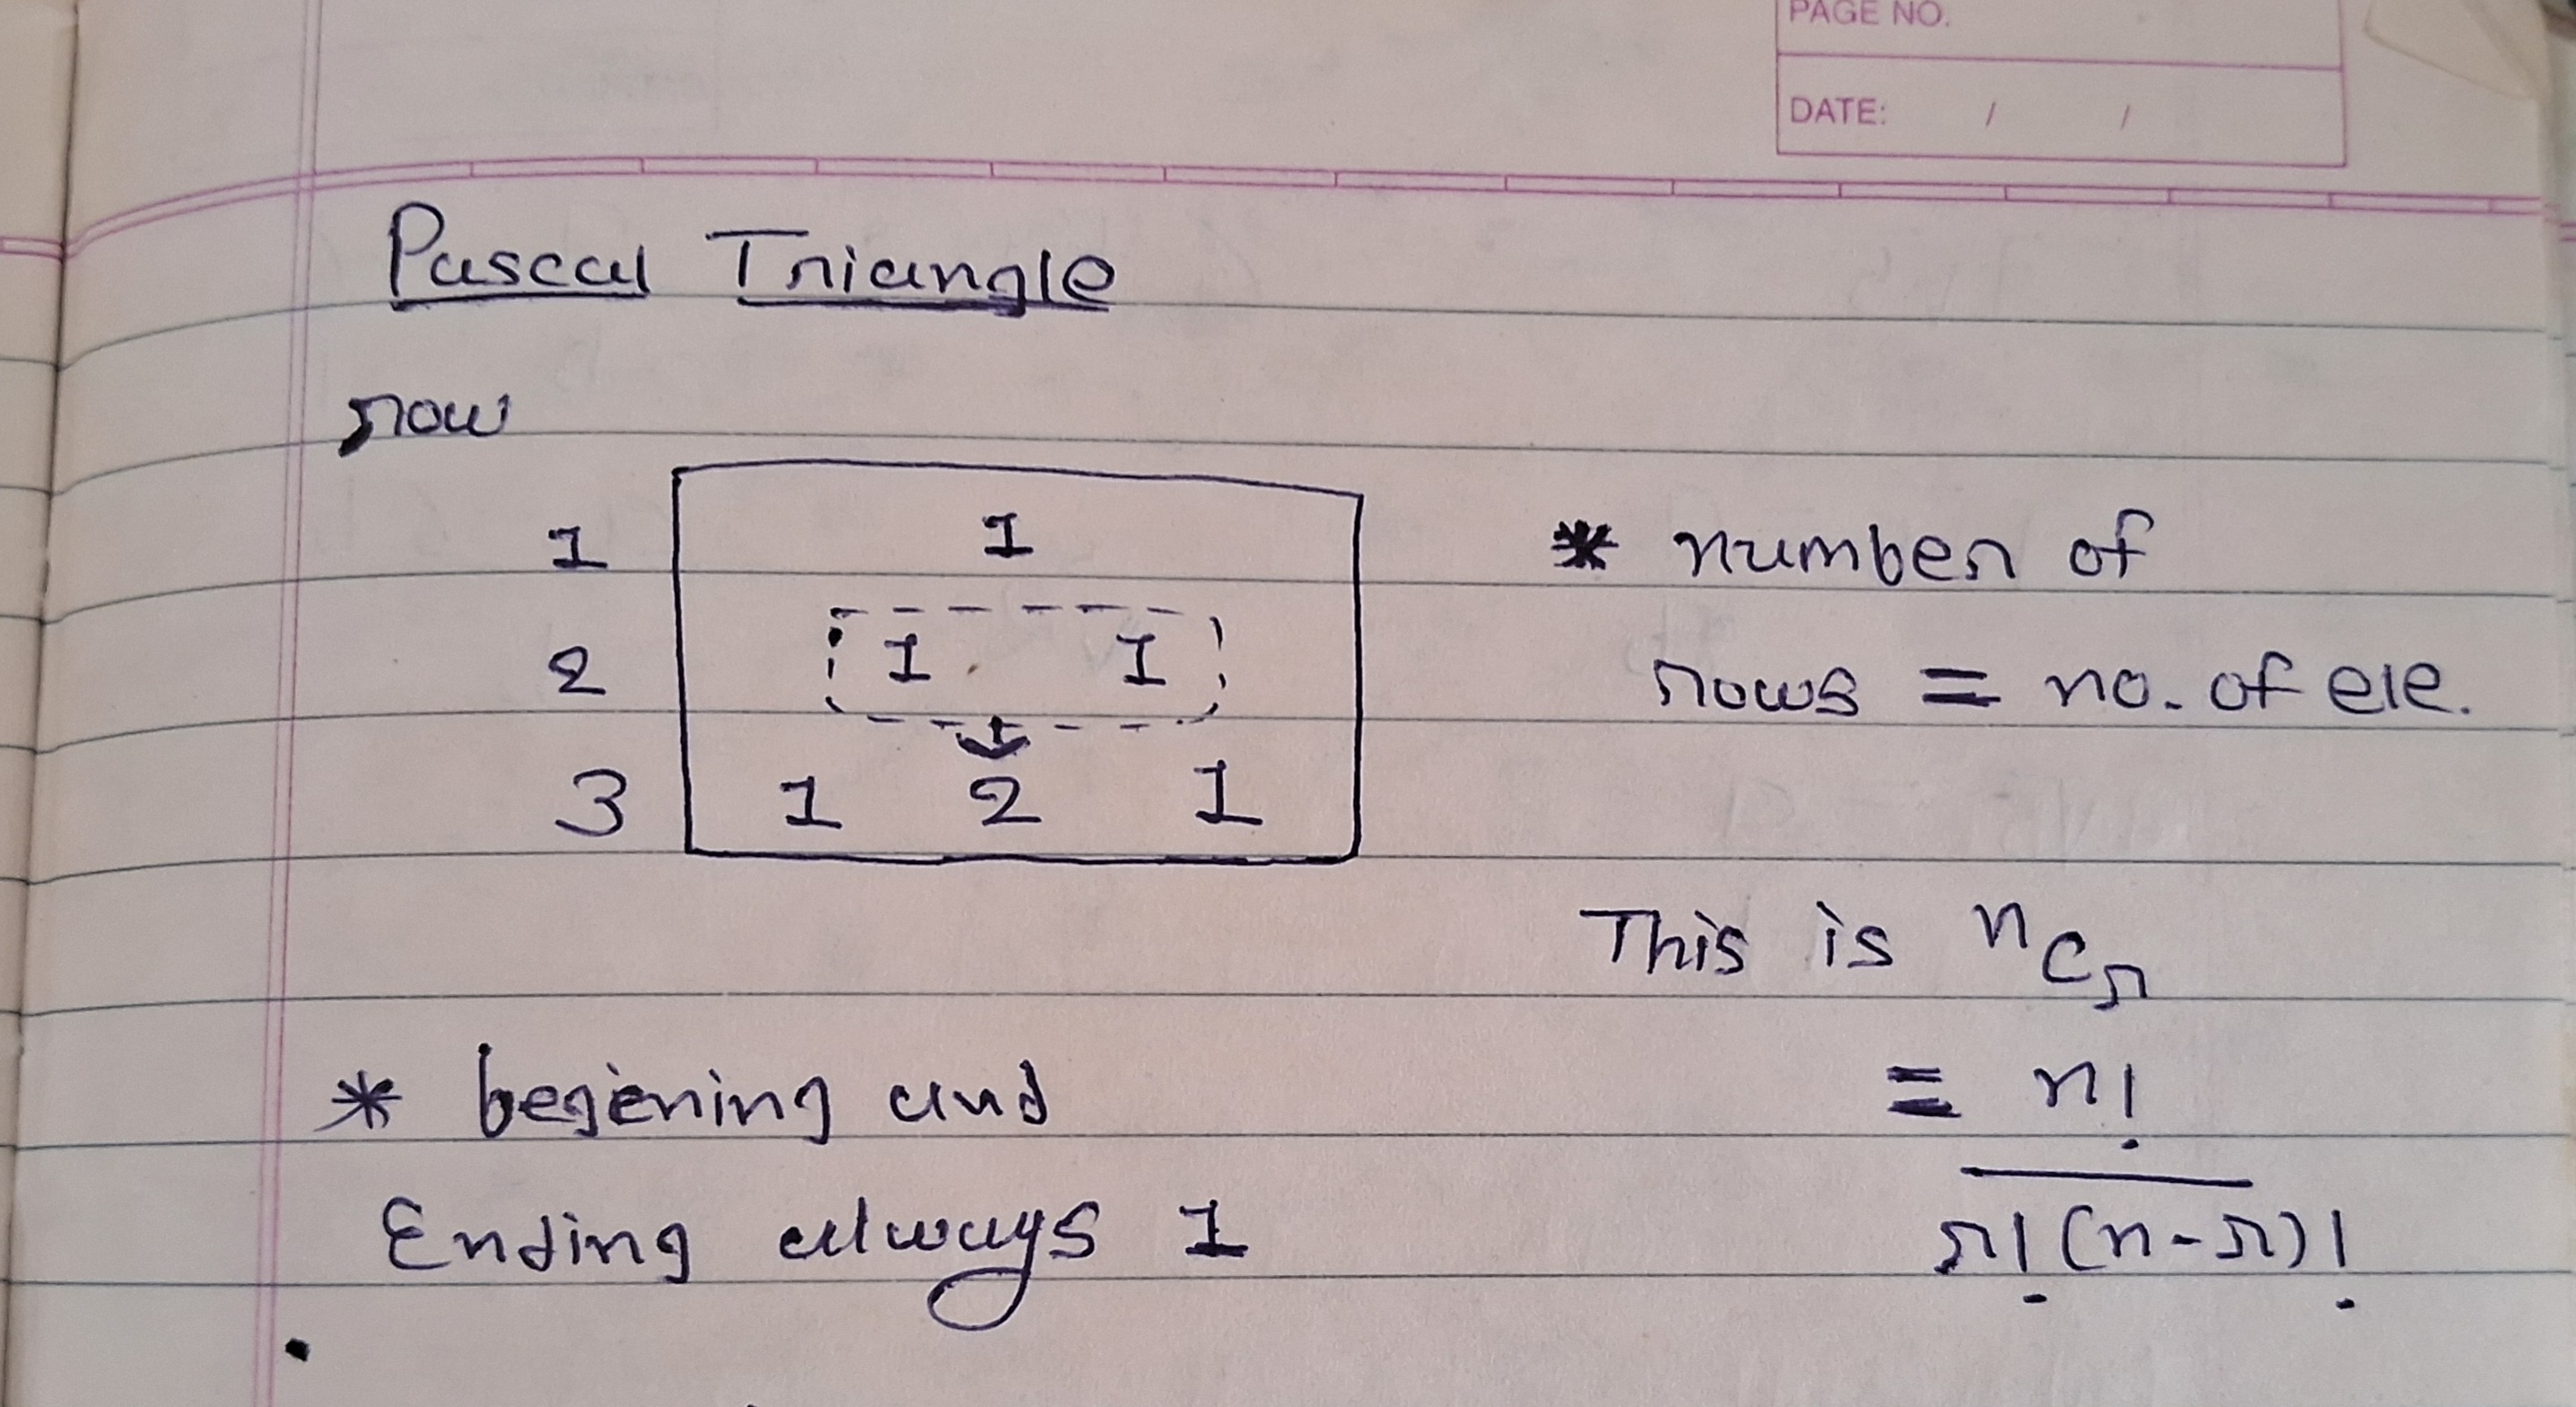 PAGE NO.
DATE: / /
Pascal Triangle
row
1 1
2 1 1
3 1 2 1
* number of
rows = no. of ele.
This is nCr
= n!
r! (n-r)!
* begening and
Ending always 1